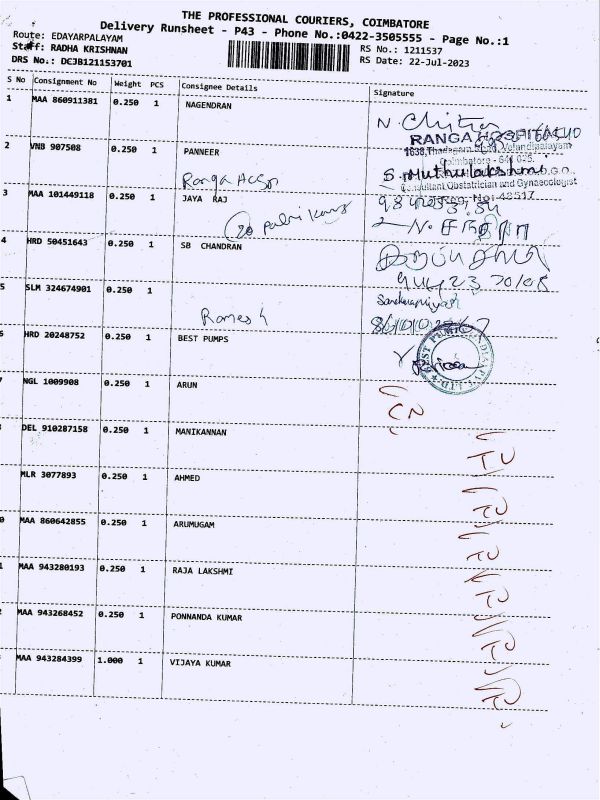 THE PROFESSIONAL COURIERS, COIMBATORE
Delivery Runsheet - P43 - Phone No.:0422-3505555 - Page No.:1
Route: EDAYARPALAYAM
Staff: RADHA KRISHNAN RS No.: 1211537
DRS No.: DCJB121153701 RS Date: 22-Jul-2023
S No Consignment No Weight PCS Consignee Details Signature
1 MAA 860911381 0.250 1 NAGENDRAN
RANGA HOSPITAL
2 VNB 907508 0.250 1 PANNEER
Coimbatore - 641 025.
Ranga Hosp S. Muthulakshmi
Consultant Obstetrician and Gynaecologist
3 MAA 101449118 0.250 1 JAYA RAJ
4 HRD 50451643 0.250 1 SB CHANDRAN
5 SLM 324674901 0.250 1
Ramesh
6 HRD 20248752 0.250 1 BEST PUMPS
NGL 1009908 0.250 1 ARUN
CN
DEL 910287158 0.250 1 MANIKANNAN
TU
MLR 3077893 0.250 1 AHMED
TU
0 MAA 860642855 0.250 1 ARUMUGAM
TU
MAA 943280193 0.250 1 RAJA LAKSHMI
TU
MAA 943268452 0.250 1 PONNANDA KUMAR
TU
MAA 943284399 1.000 1 VIJAYA KUMAR
TU